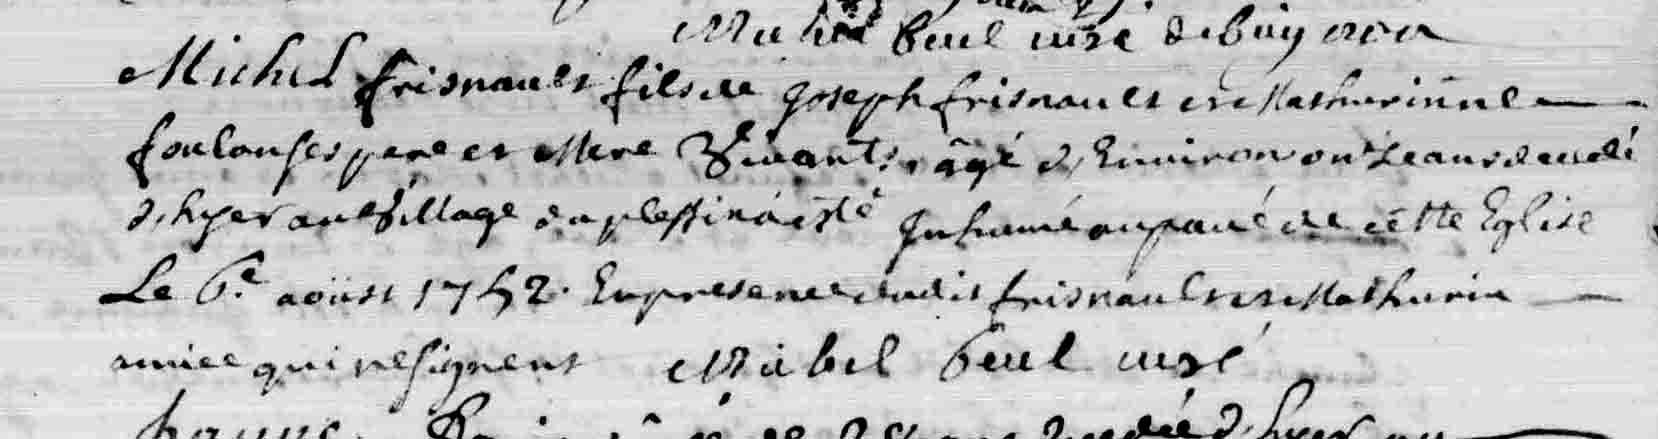 curé de
Michel frisnault fils de Joseph frisnault et Mathurinne
foulonge pere et Mere Vivants, âgé d'Environ onze ans decedé
d'hyer au Village du plessix à été Inhumé au pavé de cette Eglise
Le 6.e aoüst 1752. En presence dudit frisnault et Mathurin
qui ne signent Mabil curé
d'hyer au